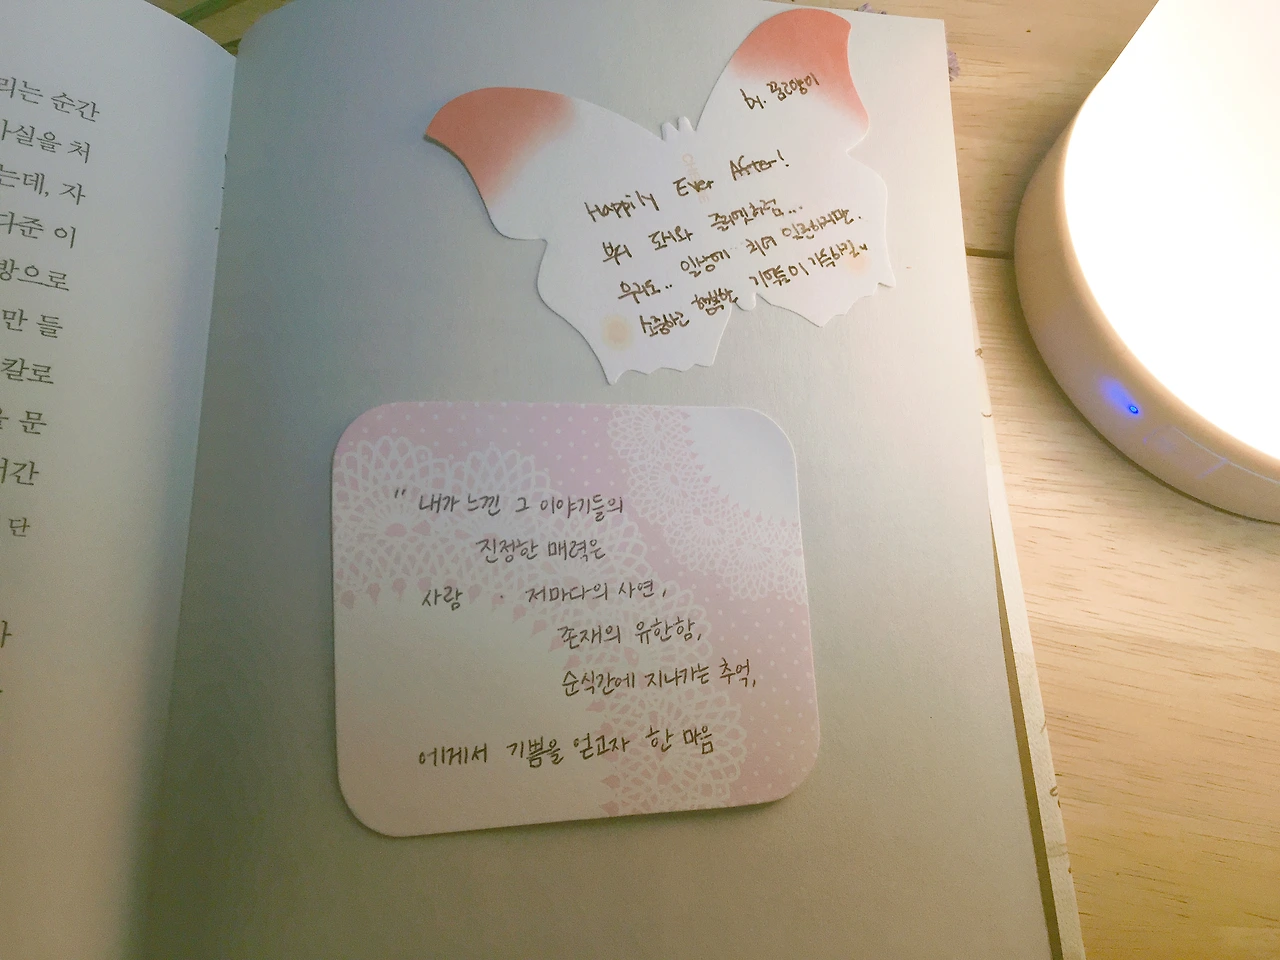 리는 순간
사실을 처
는데, 자
다준 이
방으로
만 들
칼로
문
시간
단
by. 꿈고양이
Happily Ever After!
부디 도시와 줄리엣처럼...
우리도.. 일상에 치여 일른하지만.
소중하고 행복한 기억들이 가득하길
" 내가 느낀 그 이야기들의
진정한 매력은
사람 · 저마다의 사연,
존재의 유한함,
순식간에 지나가는 추억,
에게서 기쁨을 얻고자 한 마음